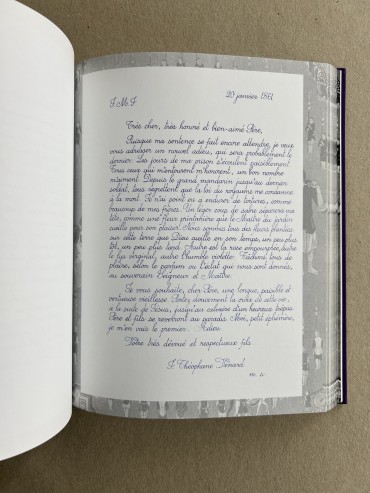 J.M.J.
20 janvier 1861
Très cher, très honoré et bien-aimé Père,
Puisque ma sentence se fait encore attendre, je veux
vous adresser un nouvel adieu, qui sera probablement le
dernier. Les jours de ma prison s'écoulent paisiblement.
Tous ceux qui m'entourent m'honorent, un bon nombre
m'aiment. Depuis le grand mandarin jusqu'au dernier
soldat, tous regrettent que la loi du royaume me condamne
à la mort. Je n'ai point eu à endurer de tortures, comme
beaucoup de mes frères. Un léger coup de sabre séparera ma
tête, comme une fleur printanière que le Maître du jardin
cueille pour son plaisir. Nous sommes tous des fleurs plantées
sur cette terre que Dieu cueille en son temps, un peu plus
tôt, un peu plus tard. Autre est la rose empourprée, autre
le lys virginal, autre l'humble violette. Tâchons tous de
plaire, selon le parfum ou l'éclat qui nous sont donnés,
au souverain Seigneur et Maître.
Je vous souhaite, cher Père, une longue, paisible et
vertueuse vieillesse. Portez doucement la croix de cette vie,
à la suite de Jésus, jusqu'au calvaire d'un heureux trépas.
Père et fils se reverront au paradis. Moi, petit éphémère,
je m'en vais le premier. Adieu.
Votre très dévoué et respectueux fils.
J. Théophane Vénard
m. s.